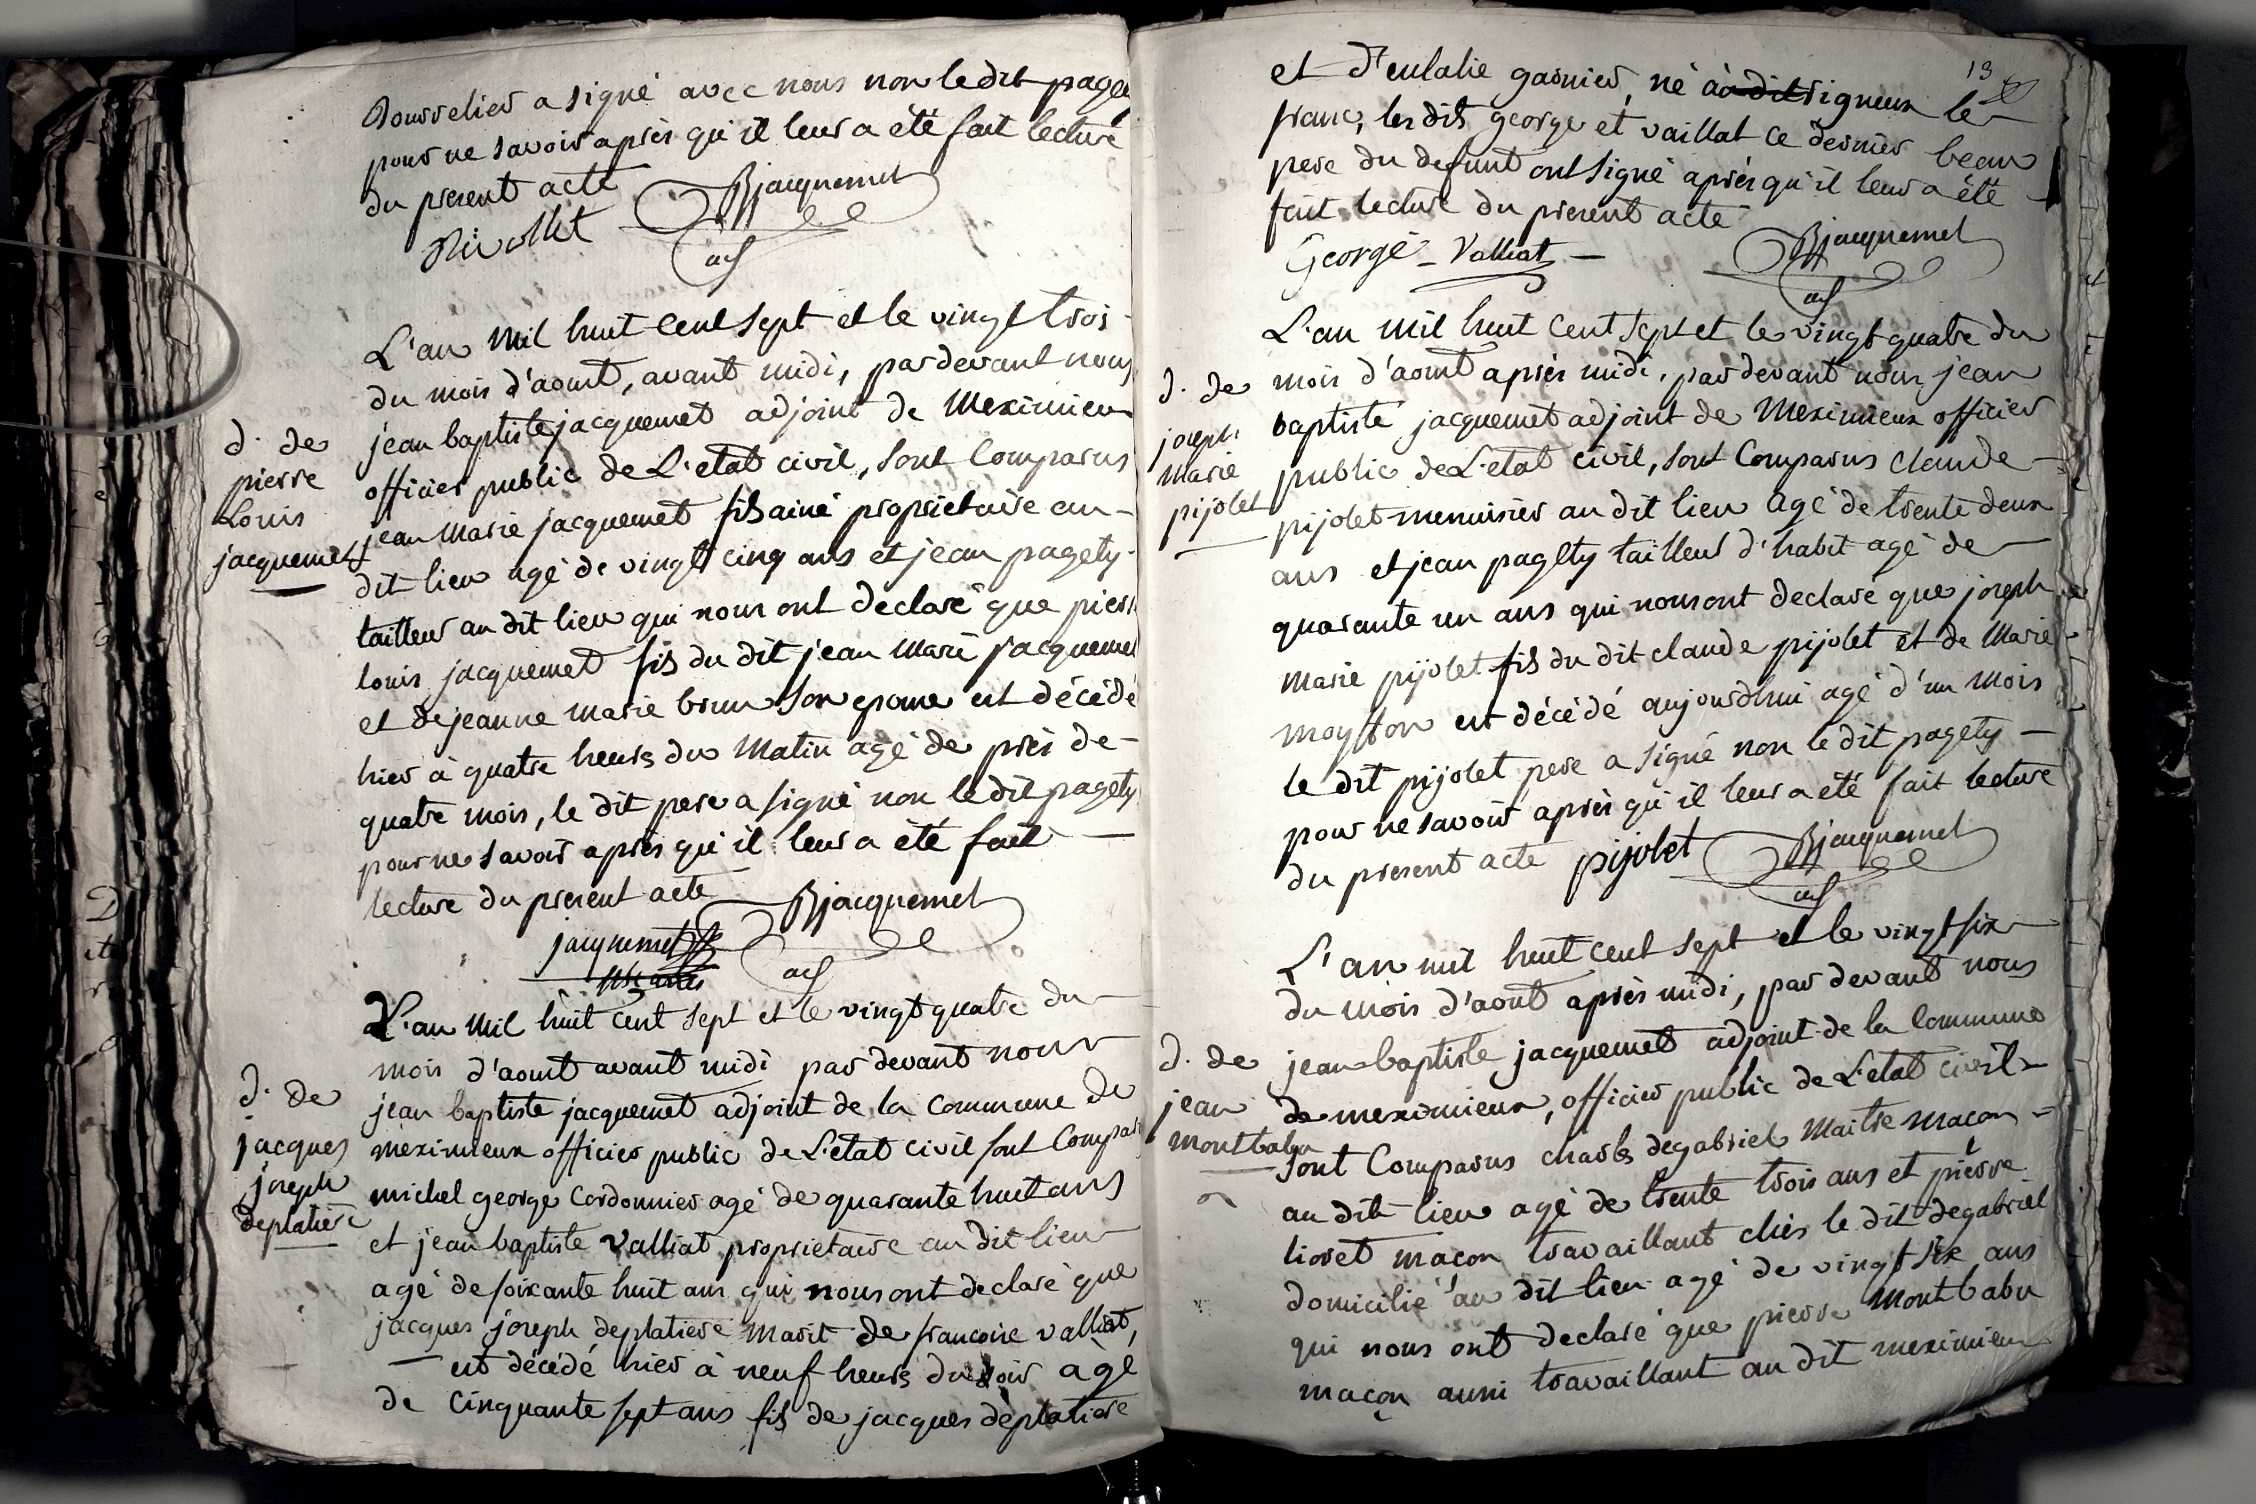 Bourrelier a signé avec nous non le dit page
pour ne savoir après qu'il leur a été fait lecture
du present acte
Rivollet Bjacquemet
adj
L'an mil huit cent sept et le vingt trois
du mois d'aout, avant midi, pardevant nous
jean baptiste jacquemet adjoint de Meximieux
officier public de L'etat civil, sont Comparus
jean Marie jacquemet fils ainé proprietaire au
dit lieu agé de vingt cinq ans et jean pagety
tailleur au dit lieu qui nous ont declaré que pierre
louis jacquemet fils du dit jean Marie jacquemet
et de jeanne marie brun son epouse est décédé
hier à quatre heures du Matin agé de près de
quatre mois, le dit pere a signé non le dit pagety
pour ne savoir après qu'il leur a été fait
lecture du present acte
Bjacquemet
jacquemet
fils ainé
adj
d. de
pierre
Louis
jacquemet
L'an Mil huit cent sept et le vingt quatre du
mois d'aout avant midi par devant nous
jean baptiste jacquemet adjoint de la commune de
meximieux officier public de L'etat civil sont Compar
michel george Cordonnier agé de quarante huit ans
et jean baptiste Valliat proprietaire au dit lieu
agé de soixante huit ans qui nous ont declaré que
jacques joseph deplatiere marit de francoise valliat,
est décédé hier à neuf heures du soir agé
de cinquante sept ans fils de jacques deplatiere
d. de
jacques
joseph
deplatiere
13
et d'eulalie garnier, né au dit rigneux le
franc, les dits george et vaillat ce dernier beau
pere du defunt ont signé après qu'il leur a été
fait lecture du present acte
George - Valliat Bjacquemet
adj
L'an mil huit cent sept et le vingt quatre du
mois d'aout après midi, par devant nous jean
baptiste jacquemet adjoint de Meximieux officier
public de L'etat civil, sont Comparus claude
pijolet menuisier au dit lieu agé de trente deux
ans et jean pagety tailleur d'habit agé de
quarante un ans qui nous ont declaré que joseph
marie pijolet fils du dit claude pijolet et de Marie
moyston est décédé aujourd'hui agé d'un mois
le dit pijolet pere a signé non le dit pagety
pour ne savoir après qu'il leur a été fait lecture
du present acte pijolet Bjacquemet
adj
d. de
joseph
Marie
pijolet
L'an mil huit cent sept et le vingt six
du mois d'aout après midi, par devant nous
jean baptiste jacquemet adjoint de la Commune
de meximieux, officier public de L'etat civil
sont Comparus charles degabriel Maitre macon
au dit lieu agé de trente trois ans et pierre
lioret macon travaillant chés le dit degabriel
domicilié au dit lieu agé de vingt six ans
qui nous ont declaré que pierre Montbabu
maçon aussi travaillant au dit meximieux
d. de
jean
montbabu